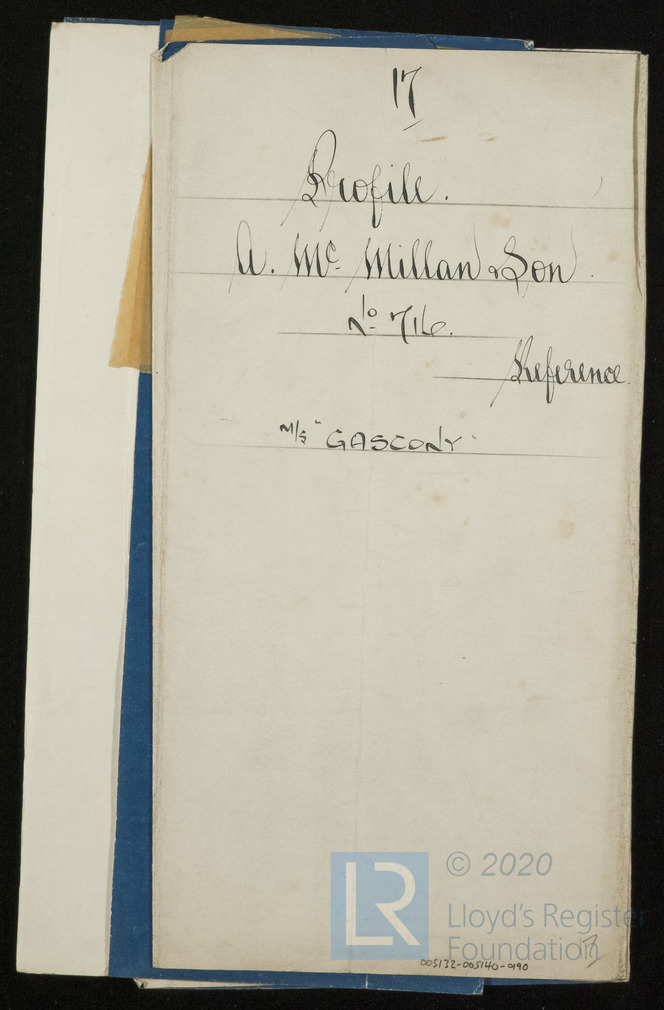 17
Profile.
A. Mc. Millan & Son.
No 716.
Reference.
M/S "GASCONY"
LR
© 2020
Lloyd's Register
Foundation
7
005132-005140-0190